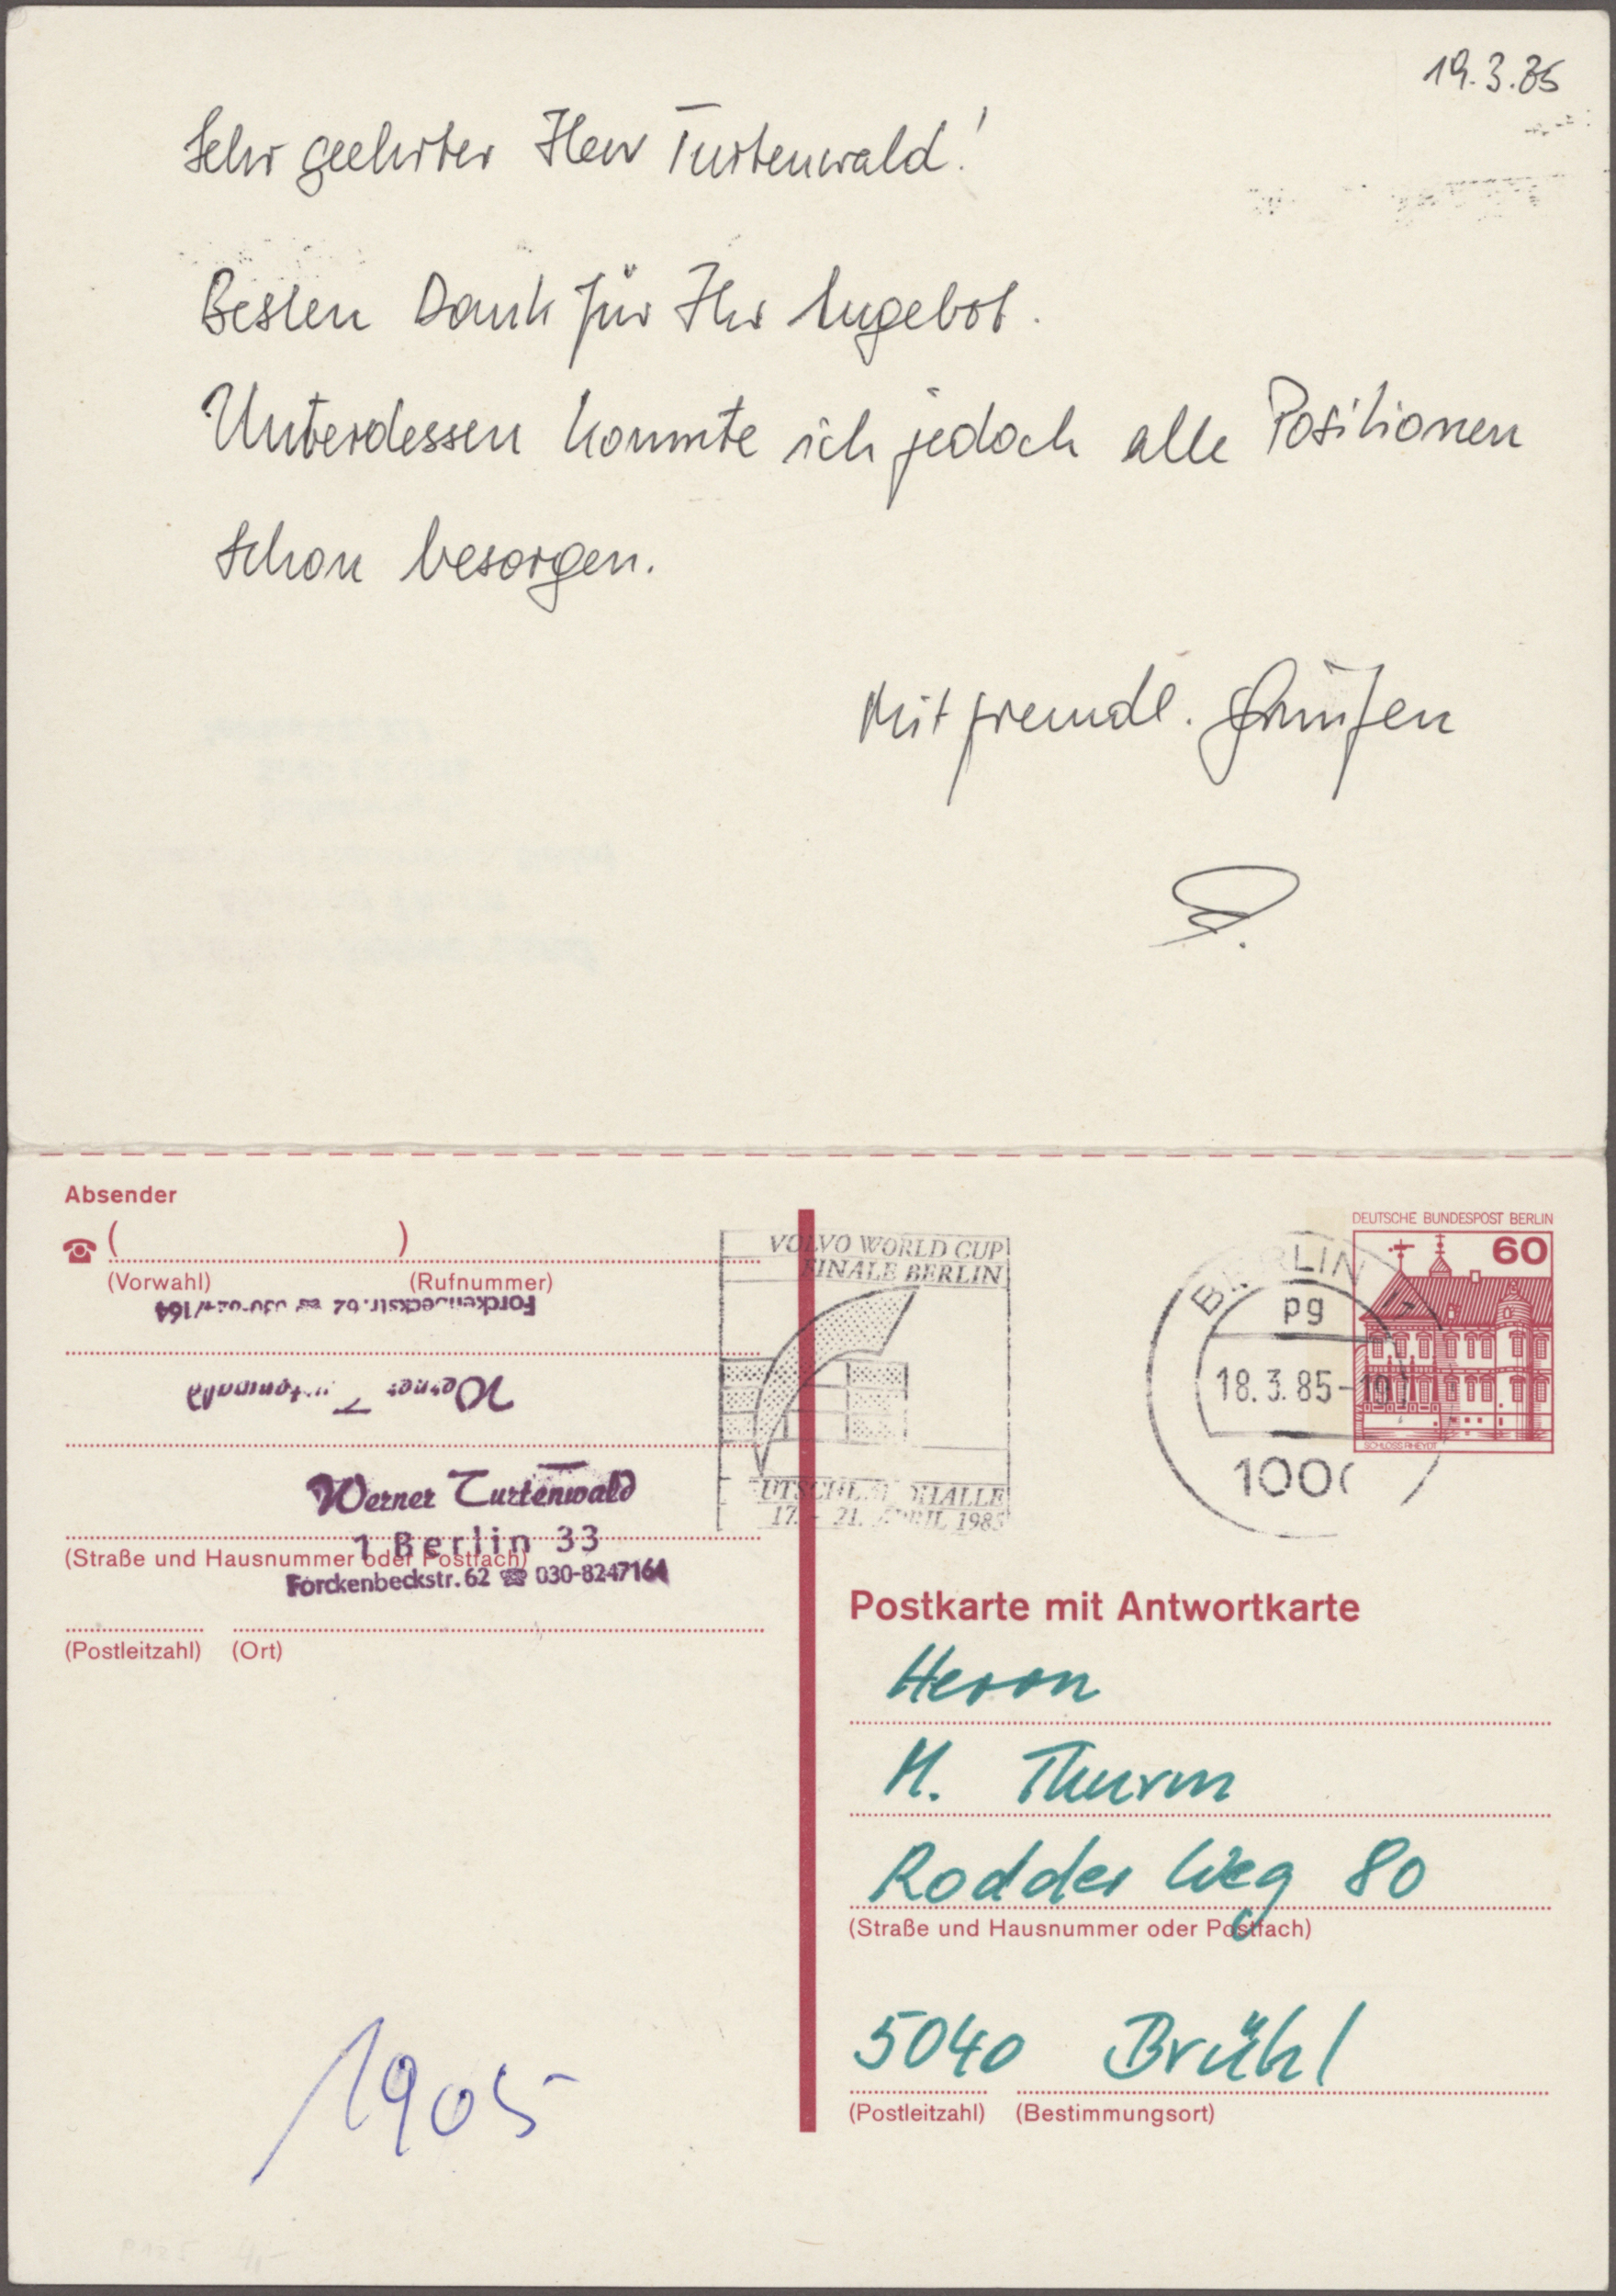 19.3.85
Sehr geehrter Herr Turtenwald!
Besten Dank für Ihr Angebot.
Unterdessen konnte ich jedoch alle Positionen
schon besorgen.
Mit freundl. Grüßen
Absender
( )
(Vorwahl) (Rufnummer)
Forckenbeckstr. 62
Werner
Werner Turtenwald
1 Berlin 33
(Straße und Hausnummer oder Postfach)
Forckenbeckstr. 62 ☎ 030-8247164
(Postleitzahl) (Ort)
1905
VOLVO WORLD CUP
FINALE BERLIN
17. - 21. APRIL 1985
DEUTSCHE BUNDESPOST BERLIN
60
SCHLOSS RHEYDT
BERLIN
pg
18.3.85-19
Postkarte mit Antwortkarte
Herrn
M. Thurm
Rodder Weg 80
(Straße und Hausnummer oder Postfach)
5040 Brühl
(Postleitzahl) (Bestimmungsort)